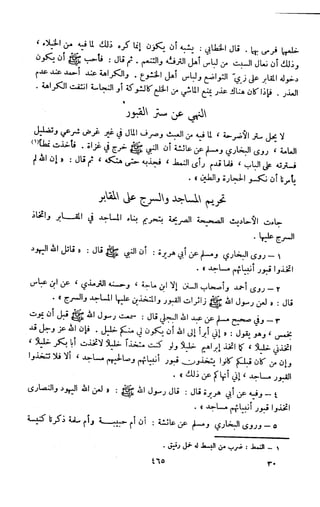 خلعها فرمى بها . قال الخطابي : يشبه أن يكون إنما كره ذلك لما فيه من الخيلاء ،
وذلك أن نعال السبت من لباس أهل الترفه والتنعم . ثم قال : فأحب ﷺ أن يكون
دخوله المقابر على زي التواضع ولباس أهل الخشوع . والكراهة عند أحمد عند عدم
العذر . فإذا كان هناك عذر يمنع الماشي من الخلع كالشوكة أو النجاسة انتفت الكراهة .
النهي عن ستر القبور
لا يحل ستر الأضرحة ، لما فيه من العبث وصرف المال في غير غرض شرعي وتضليل
العامة ، روى البخاري ومسلم عن عائشة أن النبي ﷺ خرج في غزاة . فأخذت نمطا (١)
فسترته على الباب ، فلما قدم رأى النمط ، فجذبه حتى هتكه ، ثم قال : « إن الله لم
يأمرنا أن نكسو الحجارة والطين » .
تحريم المساجد والسرج على المقابر
جاءت الأحاديث الصحيحة الصريحة بتحريم بناء المساجد في المقابر واتخاذ
السرج عليها .
١ – روى البخاري ومسلم عن أبي هريرة : أن النبي ﷺ قال : « قاتل الله اليهود
اتخذوا قبور أنبيائهم مساجد » .
٢ – وروى أحمد وأصحاب السنن إلا ابن ماجة ، وحسنه الترمذي ، عن ابن عباس
قال : « لعن رسول الله ﷺ زائرات القبور والمتخذين عليها المساجد والسرج » .
٣ – وفي صحيح مسلم عن عبد الله البجلي قال : سمعت رسول الله ﷺ قبل أن يموت
بخمس ، وهو يقول : « إني أبرأ إلى الله أن يكون لي منكم خليل . فإن الله عز وجل قد
اتخذني خليلا ، كما اتخذ إبراهيم خليلا ولو كنت متخذا خليلا لاتخذت أبا بكر خليلا ،
وإن من كان قبلكم كانوا يتخذون قبور أنبيائهم وصالحيهم مساجد ، ألا فلا تتخذوا
القبور مساجد ، إني أنهاكم عن ذلك » .
٤ – وفيه عن أبي هريرة قال : قال رسول الله ﷺ : « لعن الله اليهود والنصارى
اتخذوا قبور أنبيائهم مساجد » .
٥ – وروى البخاري ومسلم عن عائشة : أن أم حبيبة وأم سلمة ذكرتا كنيسة
١ – النمط : ضرب من البسط له خمل رقيق .
٤٦٥
٣٠